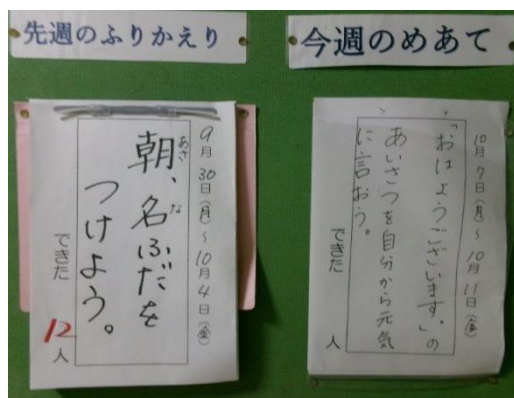 先週のふりかえり
9月30日(月)~10月4日(金)
朝、名ふだを
つけよう。
あさ
な
できた 12人
今週のめあて
10月7日(月)~10月11日(金)
「おはようございます。」の
あいさつを自分から元気
に言おう。
できた 人